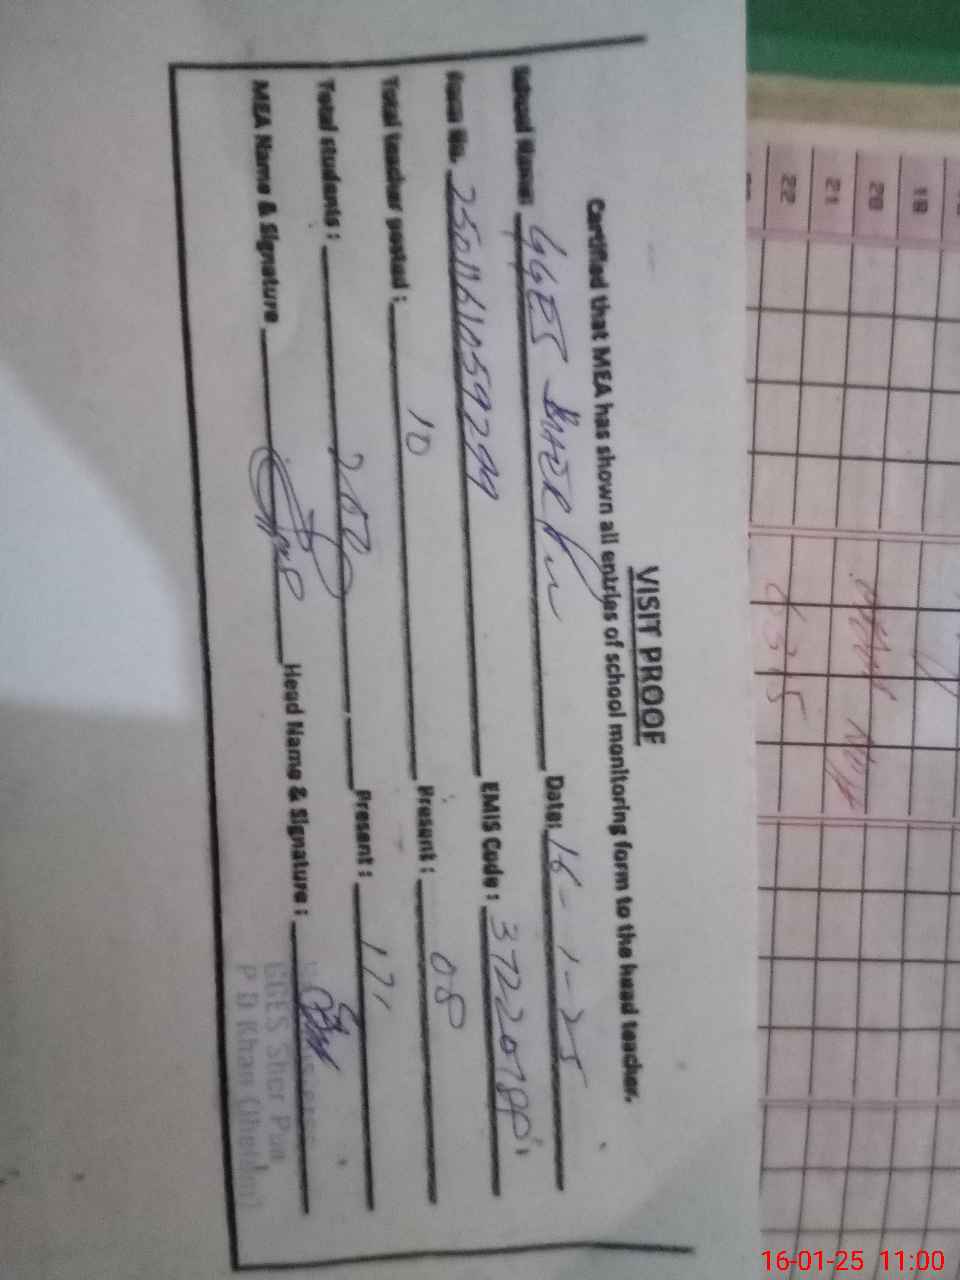 VISIT PROOF
Certified that MEA has shown all entries of school monitoring form to the head teacher.
School Name: GGES SHER Pur Date: 16-1-25
Form No. EMIS Code : 37220788
Total teacher posted : 10 Present : 08
Total students : Present : 171
MEA Name & Signature Head Name & Signature :
GGES Sher Pur
P D Khan (Jhelum)
19
20
21
22
16-01-25 11:00